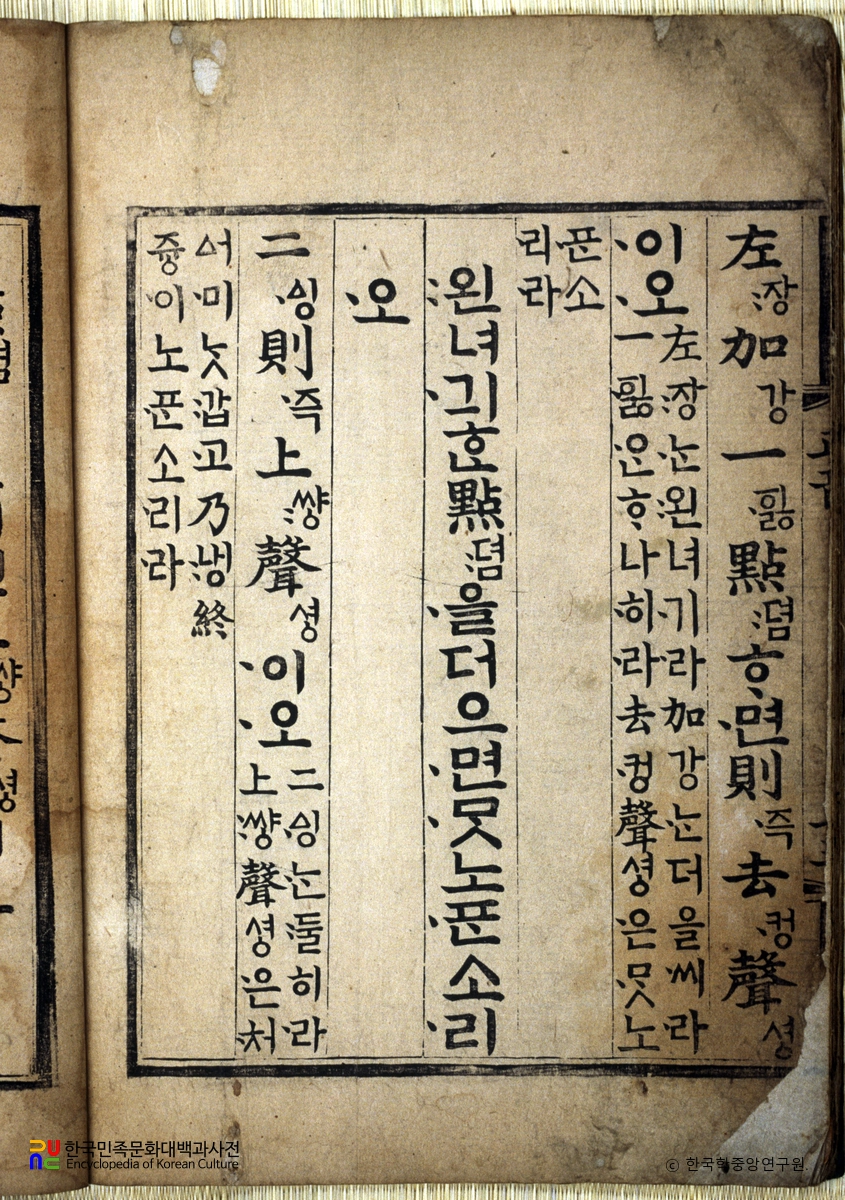 左장加강一ᅙᅵᇙ點뎜ᄒᆞ면則즉去컹聲셩
이오
左장ᄂᆞᆫ왼녀기라加강ᄂᆞᆫ더을씨라
一ᅙᅵᇙ은ᄒᆞ나히라去컹聲셩은ᄆᆞᆺ노
ᄑᆞᆫ소
리라
왼녀긔ᄒᆞᆫ點뎜을더으면ᄆᆞᆺ노ᄑᆞᆫ소리
오
二ᅀᅵᆼ則즉上쌰ᇰ聲셔ᇰ이오
二ᅀᅵᆼᄂᆞᆫ둘히라
上쌰ᇰ聲셔ᇰ은처
ᅀᅥ미ᄂᆞᆺ갑고乃냉終
쥬ᇰ이노ᄑᆞᆫ소리라
한국민족문화대백과사전
Encyclopedia of Korean Culture
© 한국학중앙연구원.